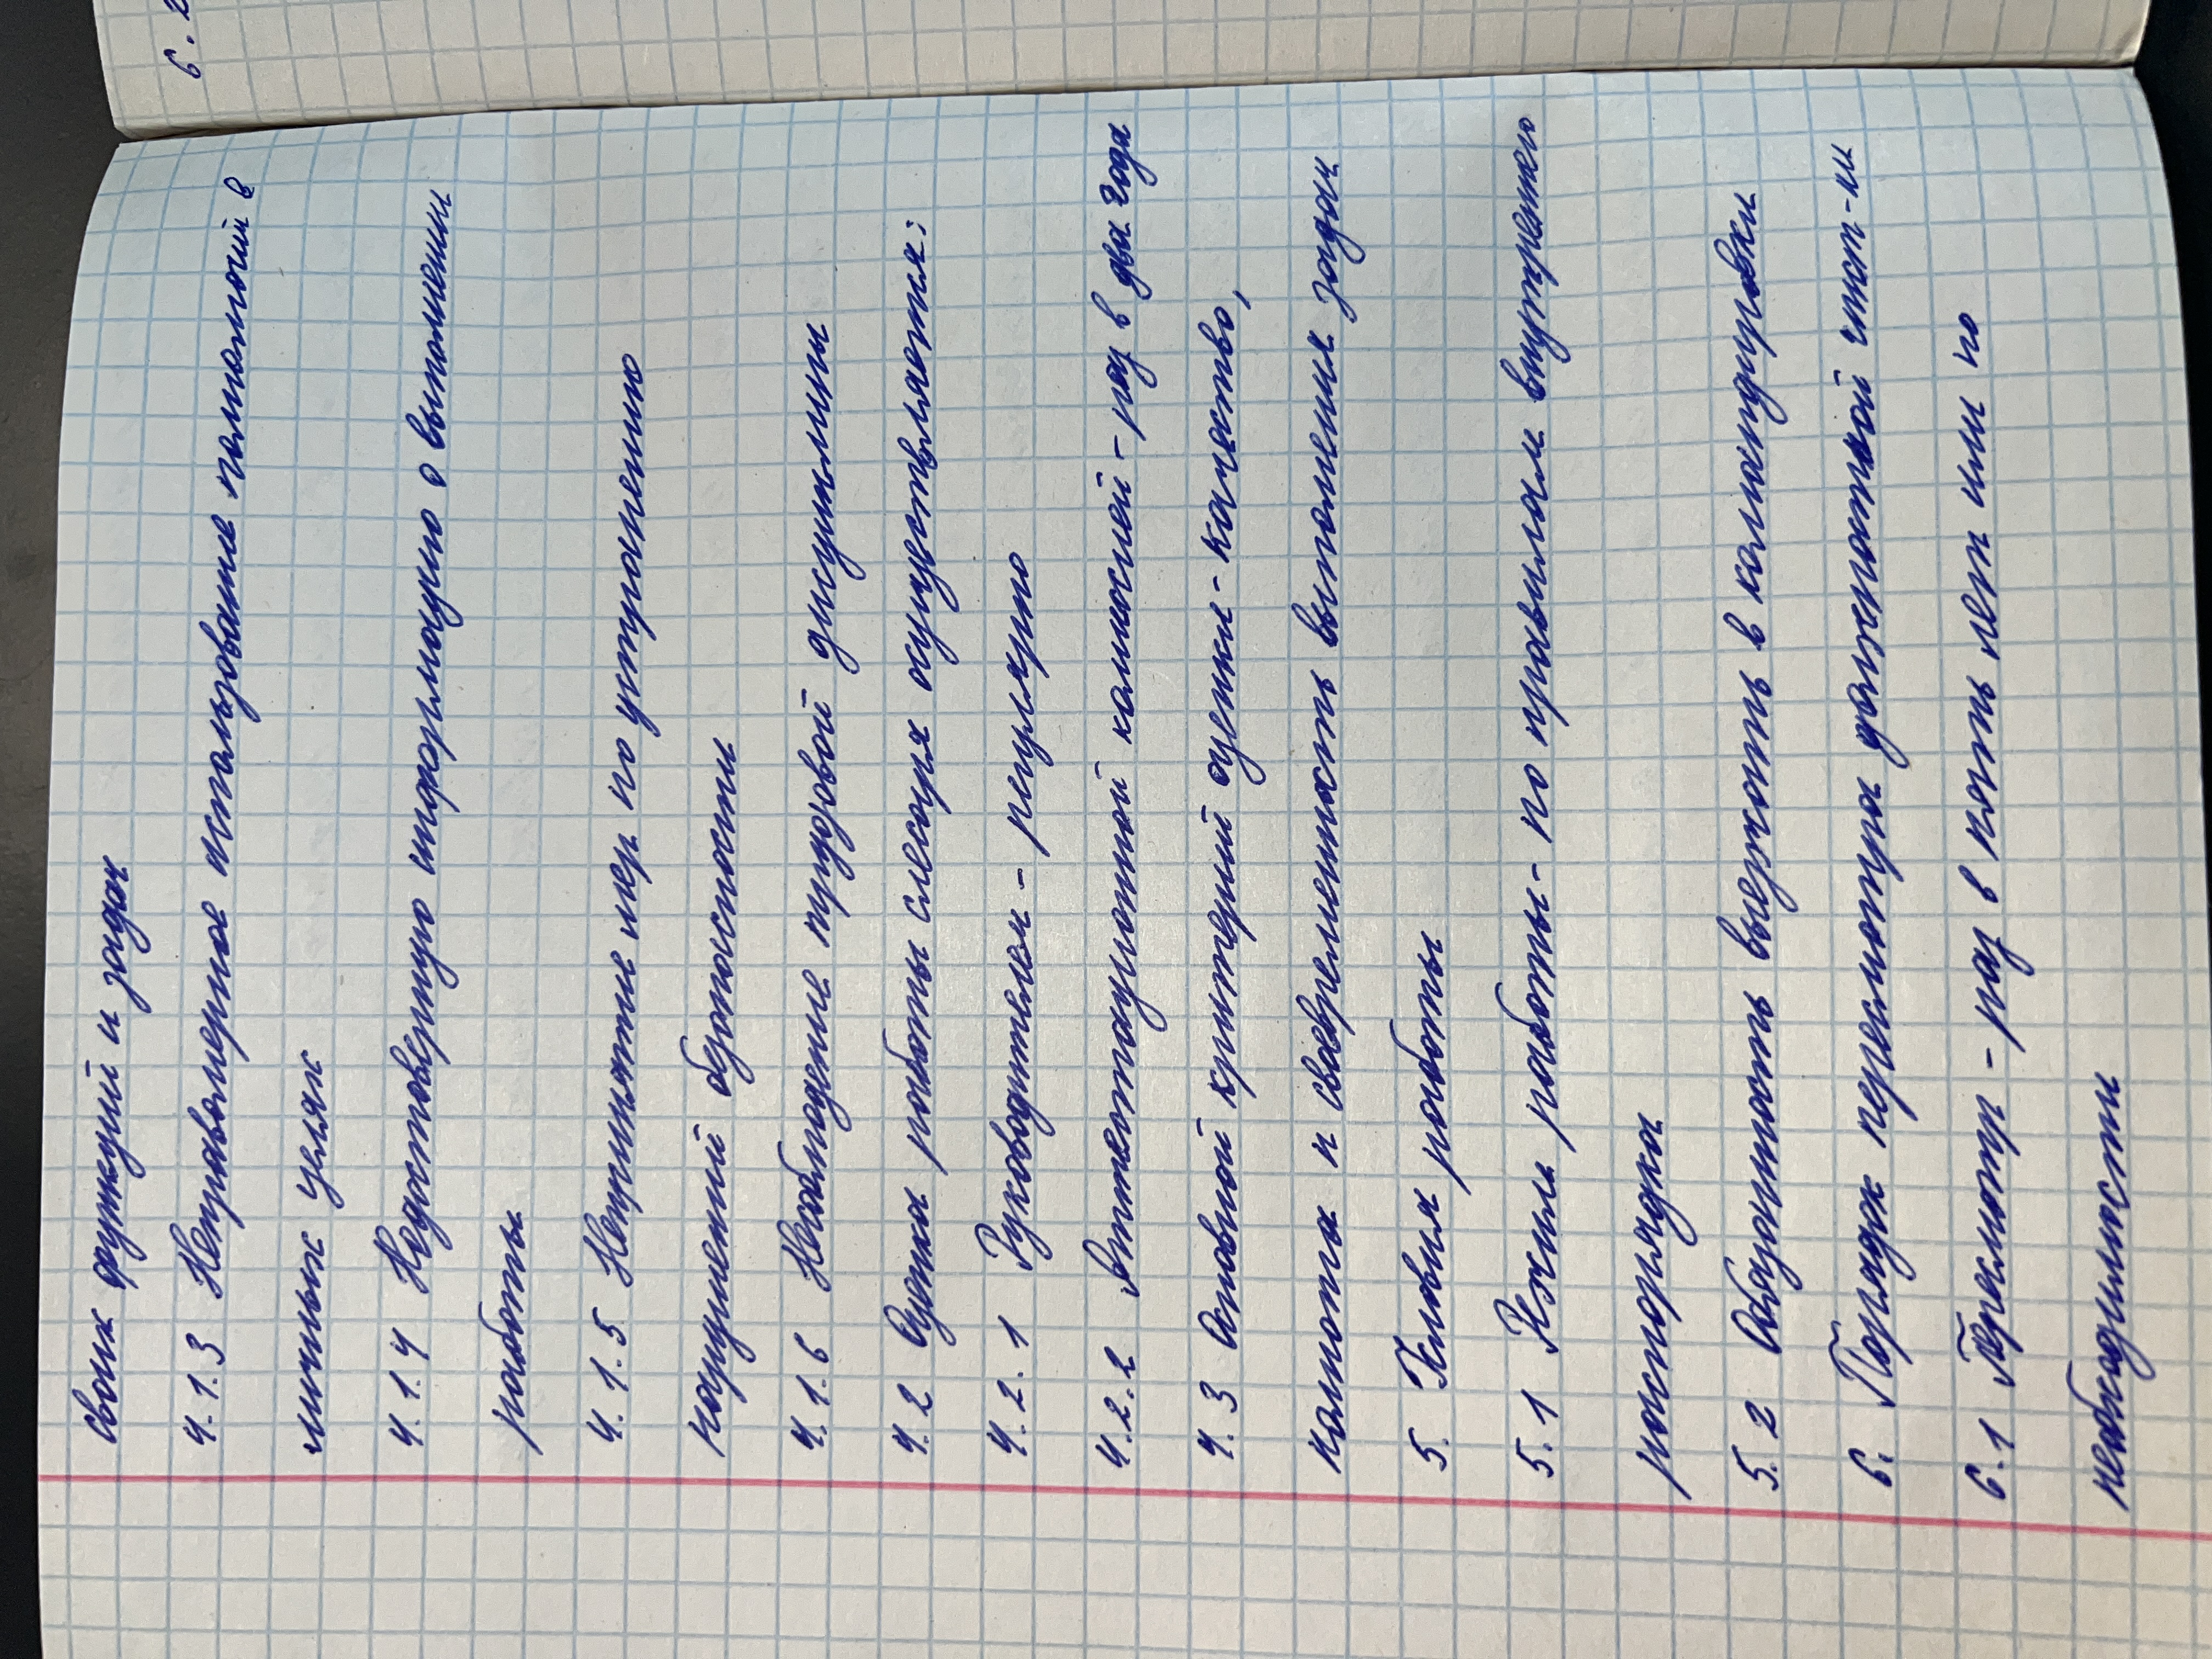 своих функций и задач
4.1.3 Неправомерное использование полномочий в
личных целях
4.1.4 Недостоверную информацию о выполнении
работы
4.1.5 Непринятие мер по устранению
нарушений безопасности
4.1.6 Несоблюдение трудовой дисциплины
4.2 Оценка работы слесаря осуществляется:
4.2.1 Руководителем - регулярно
4.2.2 Аттестационной комиссией - раз в два года
4.3 Основной критерий оценки - качество,
полнота и своевременность выполнения задач
5. Условия работы
5.1 Режим работы - по правилам внутреннего
распорядка
5.2 Обязанность выезжать в командировки
6. Порядок пересмотра должностной инст-ии
6.1 Пересмотр - раз в пять лет или по
необходимости
6.2